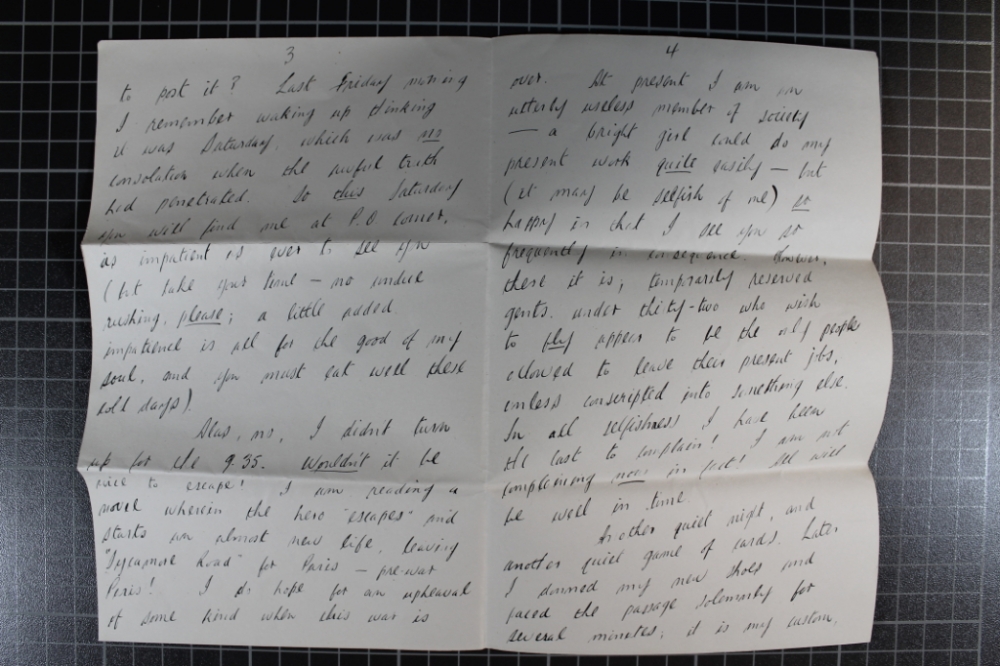 3
to post it? Last Friday morning
I remember waking up thinking
it was Saturday, which was no
consolation when the awful truth
had penetrated. So this Saturday
you will find me at P.O corner,
as impatient as ever to see you
(but take your time – no undue
rushing, please; a little added
impatience is all for the good of my
soul, and you must eat well these
cold days).
Alas, no, I didn't turn
up for the 9.35. Wouldn't it be
nice to escape! I am reading a
novel wherein the hero "escapes" and
starts an almost new life, leaving
"Sycamore Road" for Paris – pre-war
Paris! I do hope for an upheaval
of some kind when this war is
4
over. At present I am an
utterly useless member of society
— a bright girl could do my
present work quite easily – but
(it may be selfish of me) so
happy in that I see you so
frequently in consequence. However,
there it is; temporarily reserved
gents. under thirty-two who wish
to fly appear to be the only people
allowed to leave their present jobs,
unless conscripted into something else.
In all selfishness I have been
the last to complain! I am not
complaining now in fact! All will
be well in time.
Another quiet night, and
another quiet game of cards. Later
I donned my new shoes and
paced the passage solemnly for
several minutes; it is my custom,